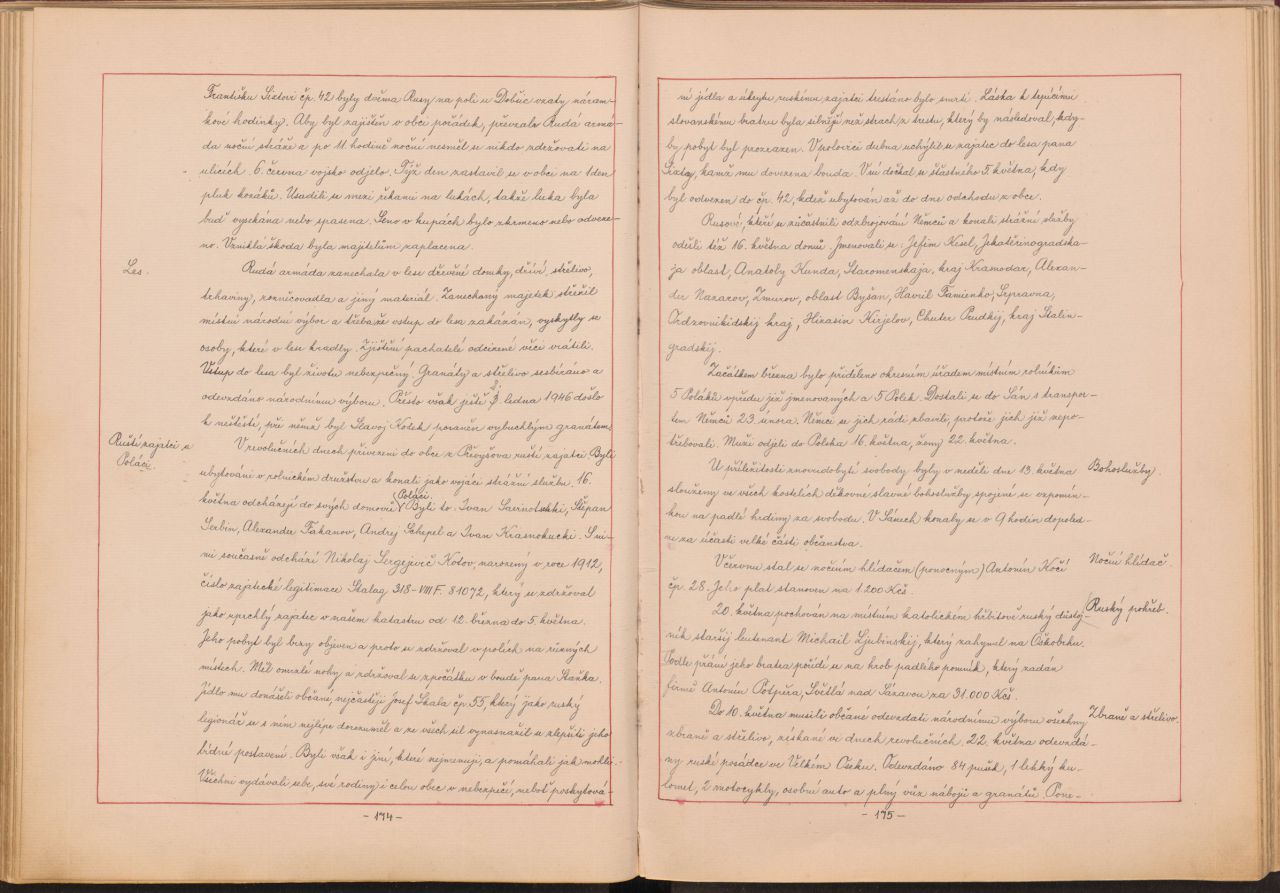 Františku Sixtovi čp. 42 byly dvěma Rusy na poli u Dobšic vzaty náram-
kové hodinky. Aby byl zajištěn v obci pořádek, převzala Rudá armá-
da noční stráže a po 11. hodině noční nesměl se nikdo zdržovati na
ulicích. 6. června vojsko odjelo. Týž den zastavil se v obci na 1 den
pluk kozáků. Usadili se mezi řekami na lukách, takže luka byla
buď vysekána nebo spasena. Seno v kupách bylo zkrmeno nebo odveze-
no. Vzniklá škoda byla majitelům zaplacena.
Les.
Rudá armáda zanechala v lese dřevěné domky, dříví, střelivo,
trhaviny, rozněcovadla a jiný materiál. Zanechaný majetek střežil
místní národní výbor a třebaže vstup do lesa zakázán, vyskytly se
osoby, které v lese kradly. Zjištění pachatelé odcizené věci vrátili.
Vstup do lesa byl životu nebezpečný. Granáty a střelivo sesbíráno a
odevzdáno národnímu výboru. Přesto však ještě 2. ledna 1946 došlo
k neštěstí, při němž byl Slavoj Kotek poraněn výbuchlým granátem.
Ruští zajatci a
Poláci.
V revolučních dnech přivezeni do obce z Převýšova ruští zajatci. Byli
ubytováni v rolnickém družstvu a konali jako vojáci strážní službu. 16.
května odcházejí do svých domovů Poláci. Byli to: Ivan Savrnotski, Štěpan
Serbin, Alexander Takanov, Andrej Schepel a Ivan Krasnokucki. S ni-
mi současně odchází Nikolaj Sergejevič Kotov, narozený v roce 1912,
číslo zajatecké legitimace Stalag 318-VIII F. 81072, který se zdržoval
jako uprchlý zajatec v našem katastru od 12. března do 5. května.
Jeho pobyt byl brzy objeven a proto se zdržoval v polích na různých
místech. Měl omrzlé nohy a zdržoval se zpočátku v boudě pana Staňka.
Jídlo mu donášeli občané, nejčastěji Josef Skala čp. 55, který jako ruský
legionář se s ním nejlépe dorozuměl a ze všech sil vynasnažil se zlepšiti jeho
bídné postavení. Byli však i jiní, které nejmenuji, a pomáhali jak mohli.
Všichni vydávali sebe, své rodiny i celou obec v nebezpečí, neboť poskytová-
- 174 -
ní jídla a úkrytu ruskému zajatci trestáno bylo smrtí. Láska k trpícímu
slovanskému bratru byla silnější než strach z trestu, který by následoval, kdy-
by pobyt byl prozrazen. V polovici dubna uchýlil se zajatec do lesa pana
Sixty, kamž mu dovezena bouda. V ní dočkal se šťastného 5. května, kdy
byl odvezen do čp. 42, kdež ubytován až do dne odchodu z obce.
Rusové, kteří se zúčastnili odzbrojování Němců a konali strážní služby
odešli též 16. května domů. Jmenovali se: Jefim Kesel, Jekatěrinogradska-
ja oblast, Anatoly Kunda, Staromenskaja, kraj Krasnodar, Alexan-
der Nazarov, Zmurov, oblast Byšan, Havriil Famienko, Srpravna,
Ordzovnikidskij kraj, Hirasin Kirjelov, Chuter Prudkij, kraj Stalin-
gradskij.
Začátkem března bylo přiděleno okresním úřadem místním rolníkům
5 Poláků vpředu již jmenovaných a 5 Polek. Dostali se do Sán s transpor-
tem Němců 23. února. Němci se jich rádi zbavili, protože jich již nepo-
třebovali. Muži odjeli do Polska 16. května, ženy 22. května.
Bohoslužby.
U příležitosti znovudobytí svobody byly v neděli dne 13. května
slouženy ve všech kostelích děkovné slavné bohoslužby spojené se vzpomín-
kou na padlé hrdiny za svobodu. V Sánech konaly se v 9 hodin dopoled-
ne za účasti velké části občanstva.
Noční hlídač.
V červnu stal se nočním hlídačem (ponocným) Antonín Kočí
čp. 28. Jeho plat stanoven na 1.200 Kčs.
Ruský pohřeb.
20. května pochován na místním katolickém hřbitově ruský důstoj-
ník staršij leutenant Michail Ljubinskij, který zahynul na Oškobrhu.
Podle přání jeho bratra pořídí se na hrob padlého pomník, který zadán
firmě Antonín Potpěra, Světlá nad Sázavou za 31.000 Kčs.
Zbraně a střelivo.
Do 10. května musili občané odevzdati národnímu výboru všechny
zbraně a střelivo, získané ve dnech revolučních. 22. května odevzdá-
ny ruské posádce ve Velkém Oseku. Odevzdáno 84 pušek, 1 lehký ku-
lomet, 2 motocykly, osobní auto a plný vůz nábojů a granátů. Pone-
- 175 -